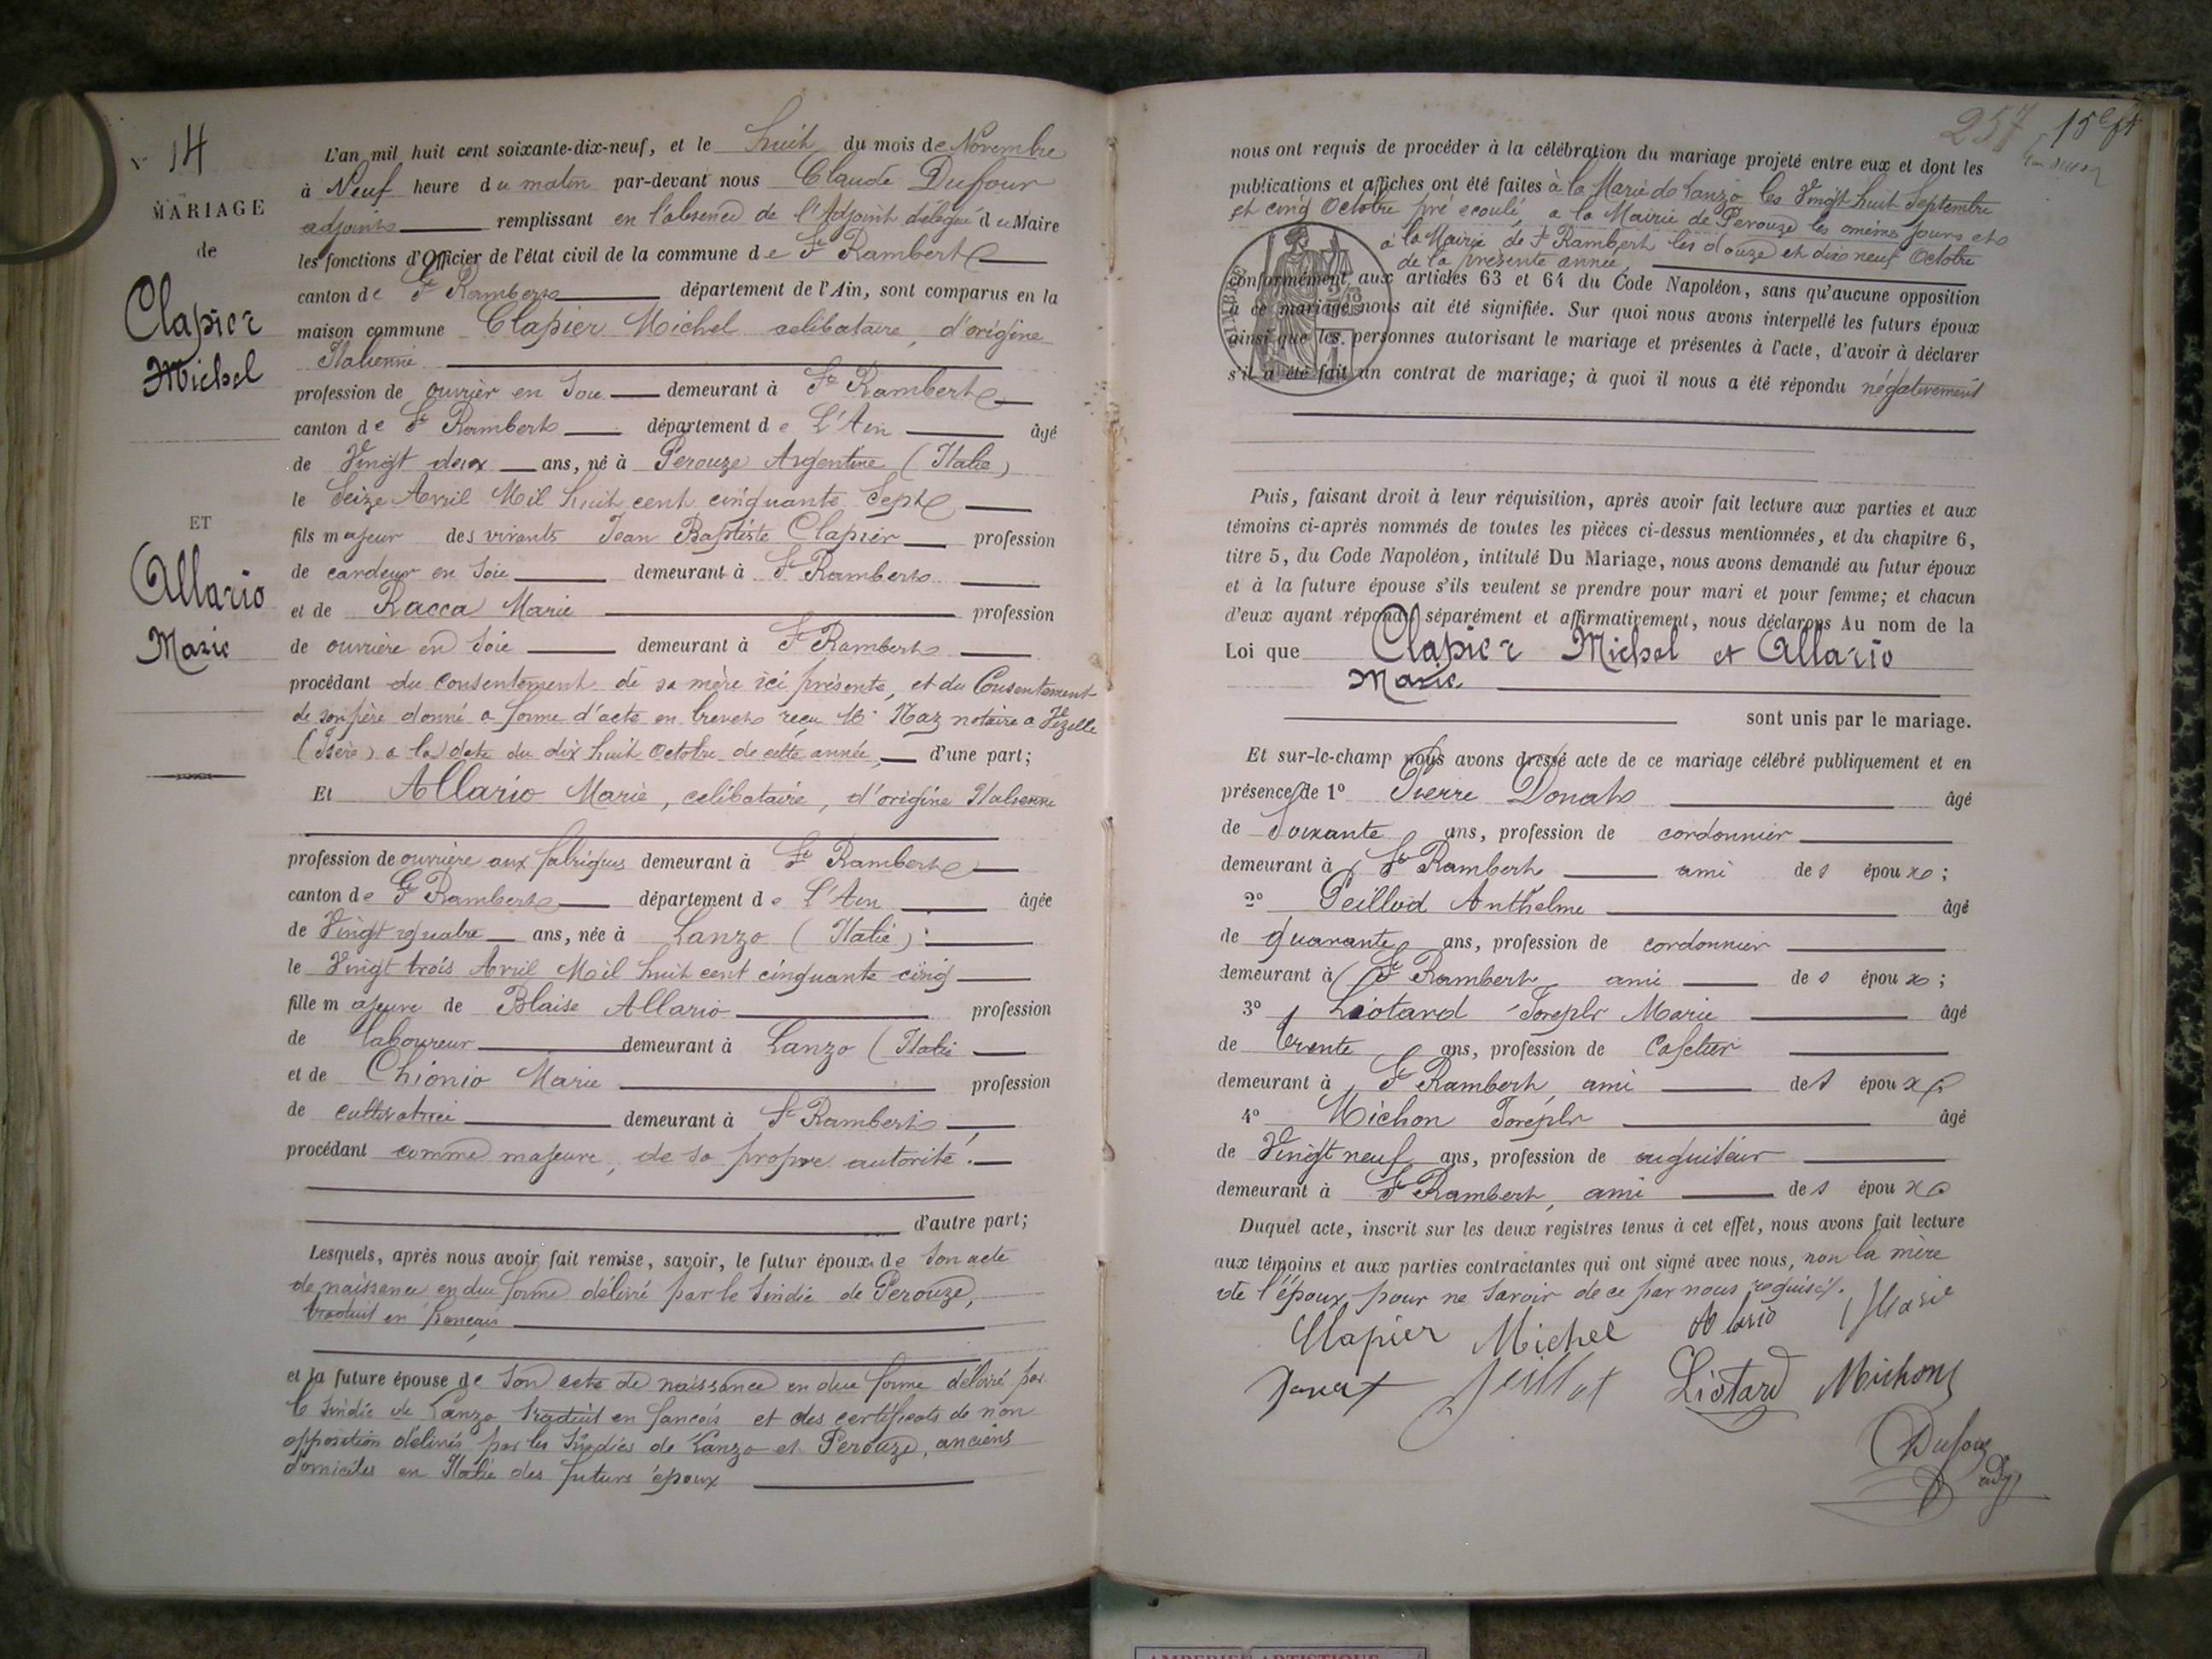 N° 14
MARIAGE
de
Clapier
Michel
ET
Allario
Marie
L'an mil huit cent soixante-dix-neuf, et le huit du mois de Novembre
à Neuf heure du matin par-devant nous Claude Dufour
adjoint remplissant en l'absence de l'Adjoint délégué du Maire
les fonctions d'Officier de l'état civil de la commune de St Rambert
canton de St Rambert département de l'Ain, sont comparus en la
maison commune Clapier Michel celibataire, d'origine
Italienne
profession de ouvrier en soie demeurant à St Rambert
canton de St Rambert département de L'Ain âgé
de Vingt deux ans, né à Perouze Argentine (Italie)
le Seize Avril Mil huit cent cinquante Sept
fils majeur des vivants Jean Baptiste Clapier profession
de cardeur en Soie demeurant à St Rambert
et de Racca Marie profession
de ouvrière en Soie demeurant à St Rambert
procédant du consentement de sa mère ici présente, et du Consentement
de son père donné a forme d'acte en brevet reçu Me Naz notaire a
(Isère) a la date du dix huit Octobre de cette année, d'une part;
Et Allario Marie, celibataire, d'origine Italienne
profession de ouvrière aux fabriques demeurant à St Rambert
canton de St Rambert département de L'Ain âgée
de Vingt quatre ans, née à Lanzo (Italie)
le Vingt trois Avril Mil huit cent cinquante cinq
fille majeure de Blaise Allario profession
de laboureur demeurant à Lanzo (Italie
et de Chionio Marie profession
de cultivatrice demeurant à St Rambert
procédant comme majeure, de sa propre autorité.
d'autre part;
Lesquels, après nous avoir fait remise, savoir, le futur époux de Son acte
de naissance en due forme délivré par le Sindic de Perouze,
traduit en français
et la future épouse de Son acte de naissance en due forme délivré par
le Sindic de Lanzo traduit en français et des certificats de non
opposition délivrés par les Sindics de Lanzo et Perouze, anciens
domiciles en Italie des futurs époux
257
nous ont requis de procéder à la célébration du mariage projeté entre eux et dont les
publications et affiches ont été faites à la Mairie de Lanzo les Vingt huit Septembre
et cinq Octobre pré ecoulé, a la Mairie de Perouze les mêmes jours et
à la Mairie de St Rambert les douze et dix neuf Octobre
de la présente année,
conformément aux articles 63 et 64 du Code Napoléon, sans qu'aucune opposition
à ce mariage nous ait été signifiée. Sur quoi nous avons interpellé les futurs époux
ainsi que les personnes autorisant le mariage et présentes à l'acte, d'avoir à déclarer
s'il a été fait un contrat de mariage; à quoi il nous a été répondu négativement
Puis, faisant droit à leur réquisition, après avoir fait lecture aux parties et aux
témoins ci-après nommés de toutes les pièces ci-dessus mentionnées, et du chapitre 6,
titre 5, du Code Napoléon, intitulé Du Mariage, nous avons demandé au futur époux
et à la future épouse s'ils veulent se prendre pour mari et pour femme; et chacun
d'eux ayant répondu séparément et affirmativement, nous déclarons Au nom de la
Loi que Clapier Michel et Allario
Marie
sont unis par le mariage.
Et sur-le-champ nous avons dressé acte de ce mariage célébré publiquement et en
présence de 1° Pierre Donat âgé
de Soixante ans, profession de cordonnier
demeurant à St Rambert ami des époux;
2° Peillod Anthelme âgé
de quarante ans, profession de cordonnier
demeurant à St Rambert ami des époux;
3° Liotard Joseph Marie âgé
de trente ans, profession de Cafetier
demeurant à St Rambert, ami des époux
4° Michon Joseph âgé
de Vingt neuf ans, profession de aiguiseur
demeurant à St Rambert, ami des époux
Duquel acte, inscrit sur les deux registres tenus à cet effet, nous avons fait lecture
aux témoins et aux parties contractantes qui ont signé avec nous, non la mère
de l'époux pour ne savoir de ce par nous requise.
Clapier Michel Alario Marie
Donat Peillot Liotard Michon
Dufour
adj